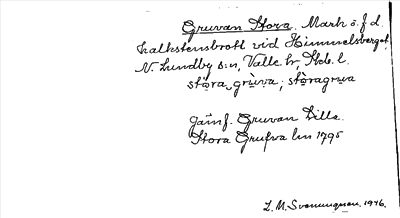 Gruvan Stora. Mark å. f. d.
kalkstensbrott vid Himmelsberget,
N. Lundby s:n, Valle hr, Skb. l.
stora gruva; storagruva
jämf. Gruvan Lilla.
Stora Grufva lm 1795
L. M. Svenungsson. 1946.